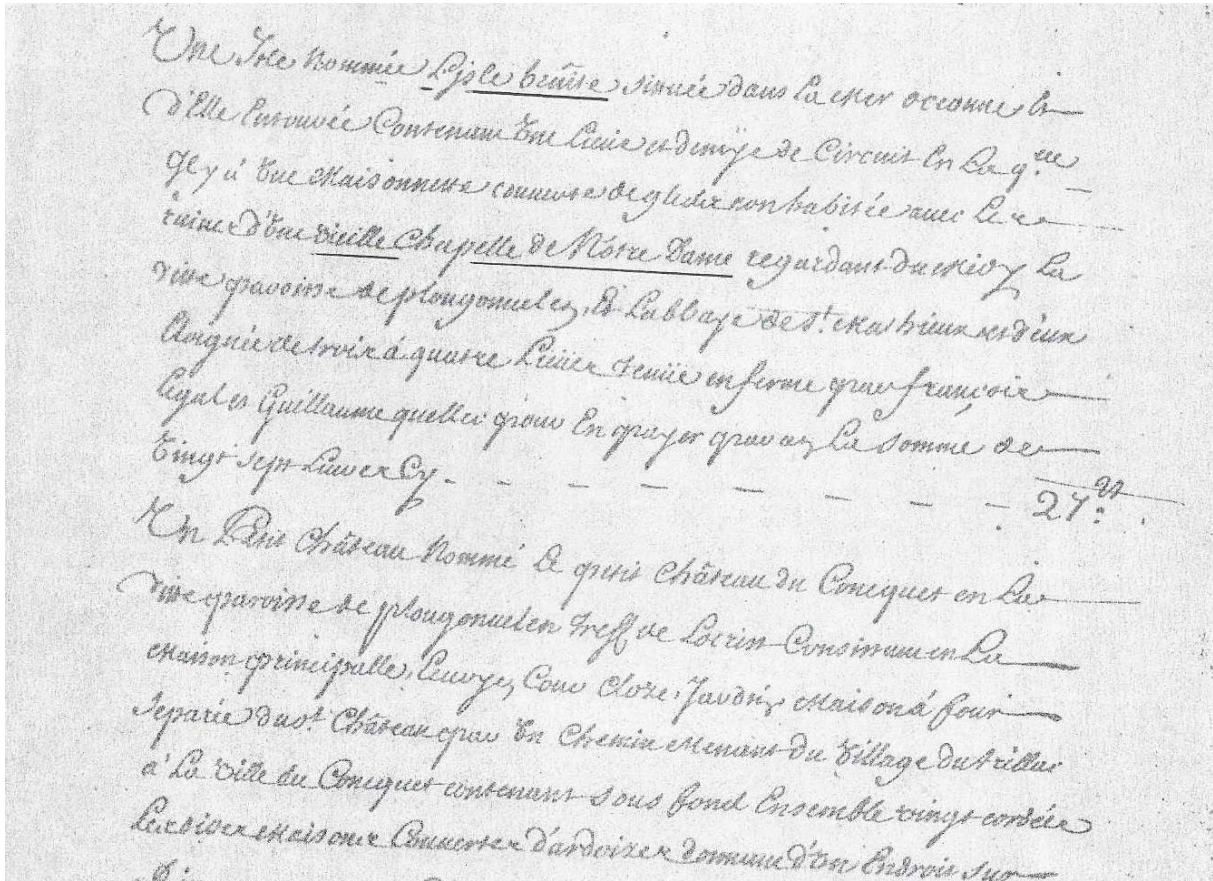 Une Isle Nommée Lisle beniste situëe dans la Mer occeanne Et
d'Elle Entourée Contenant Une Lieüe et demÿe de Circuit En Laq.elle
Il y á Une Maisonnette couverte de gleds non habitée avec Les
ruines d'Une vieille Chapelle de Notre Dame regardant du Midy La
ditte paroisse de plougonvelen, Et L'abbaye de St. Mathieux et d'eux
Eloignée de trois á quatre Lieües tenüe en ferme par francois
Legal et Guillaume quellec pour En payer par an La somme de
Vingt sept Livres Cy - - - - - - - - 27.lt
Un Petit Château Nommé Le petit Château du Concquet en La
ditte paroisse de plougonvelen treff de Locrist Consistant en La
Maison principalle, Cour Close, Jardin, Maison á four
Separée dud.t Château par Un Chemin Menant du Village du
á La ville du Concquet contenant sous fond Ensemble vingt cordées
Lesdites Maisons Couvertes d'ardoizes donnant d'Un Endroit sur